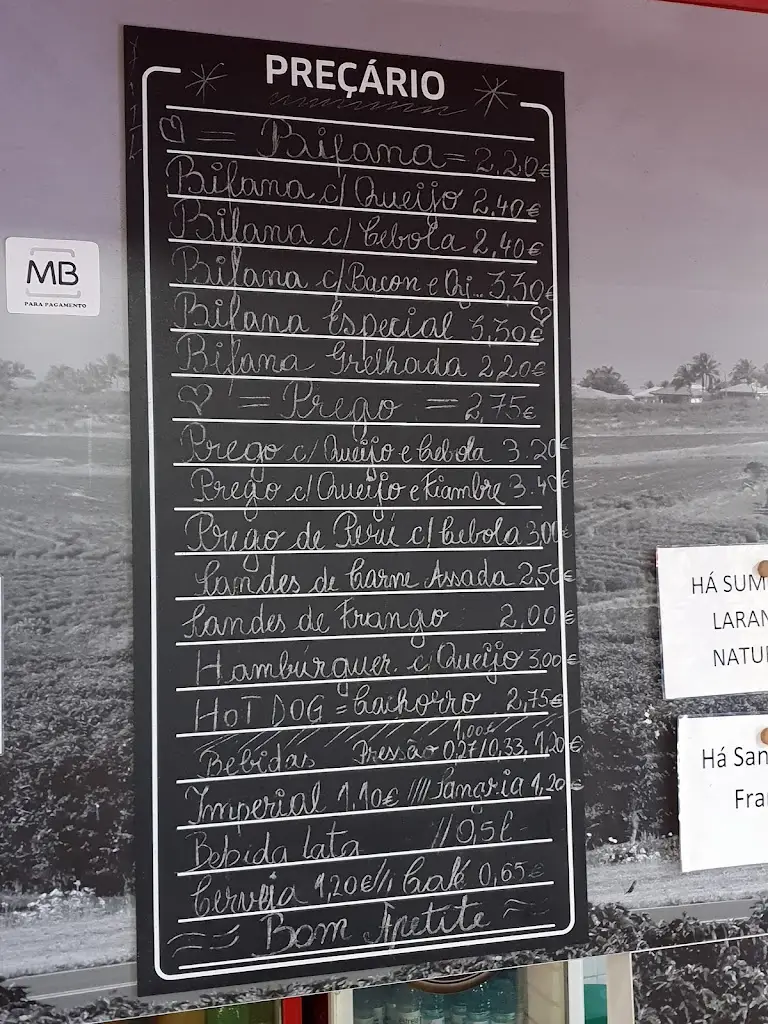 PREÇÁRIO
= Bifana = 2,20€
Bifana c/ Queijo 2,40€
Bifana c/ Cebola 2,40€
Bifana c/Bacon e Qj.. 3,30€
Bifana Especial 3,30€
Bifana Grelhada 2,20€
= Prego = 2,75€
Prego c/ Queijo e Cebola 3.20€
Prego c/ Queijo e Fiambre 3.40€
Prego de Perú c/ Cebola 3,00€
Sandes de Carne Assada 2,50€
Sandes de Frango 2,00€
Hambúrguer. c/ Queijo 3,00€
HOT DOG = Cachorro 2,75€
1,00€
Bebidas Pressão 0,27/0,33, 1,20€
Imperial 1,10€ //// 1,20€
Bebida lata //
Cerveja 1,20€// Café 0,65€
Bom Apetite
MB
PARA PAGAMENTO
HÁ SUM
LARAN
NATU
Há San
Fra